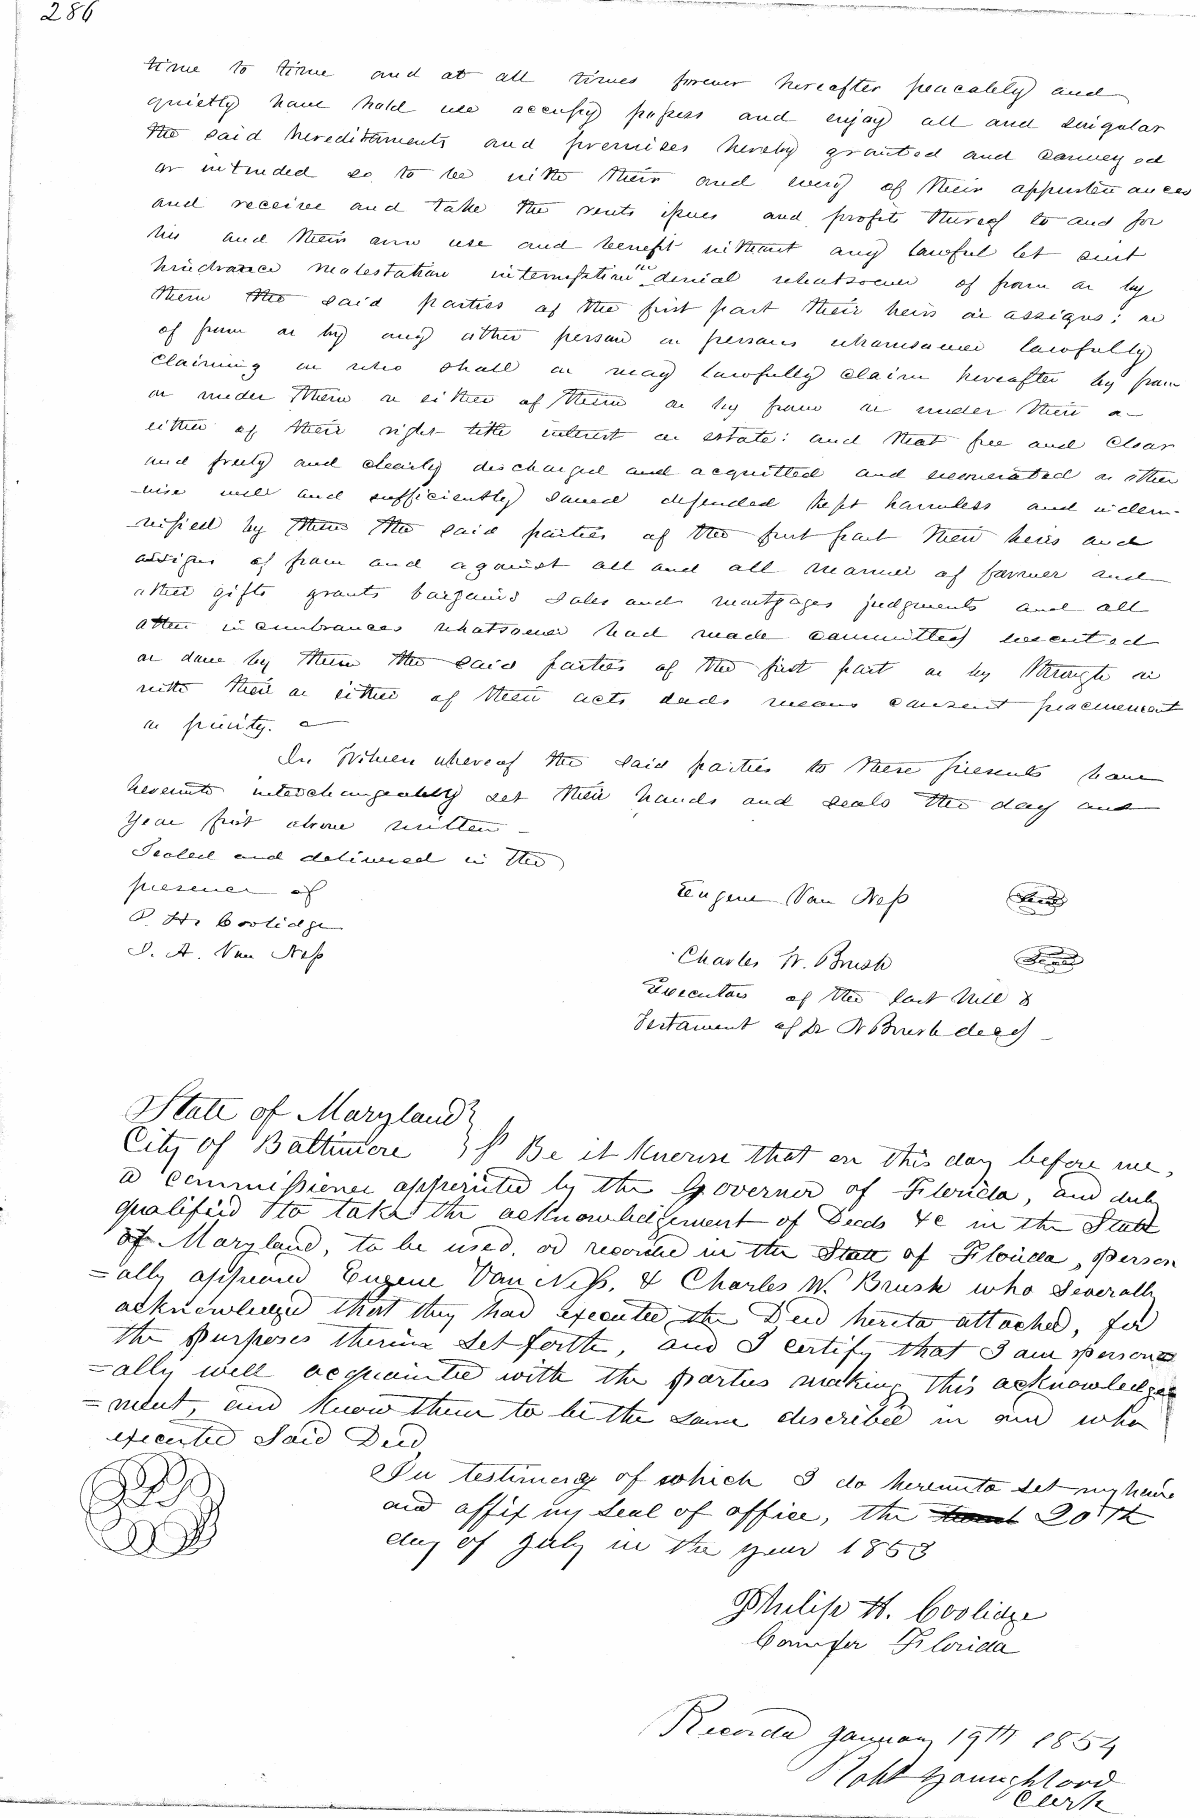 286
time to time and at all times forever hereafter peacably and
quietly have hold use occupy possess and enjoy all and singular
the said hereditaments and premises hereby granted and conveyed
or intended so to be with their and every of their appurtenances
and receive and take the rents issues and profit thereof to and for
his and their own use and benefit without any lawful let suit
hindrance molestation interruption or denial whatsoever of from or by
them the said parties of the first part their heirs or assigns; or
of from or by any other person or persons whomsoever lawfully
claiming or who shall or may lawfully claim hereafter by from
or under them or either of them or by from or under their or
either of their right title interest or estate: and that free and clear
and freely and clearly discharged and acquitted and exonerated or other
-wise well and sufficiently saved defended kept harmless and indem-
-nified by them the said parties of the first part their heirs and
assigns of from and against all and all manner of former and
other gifts grants bargains sales and mortgages judgments and all
other incumbrances whatsoever had made committed executed
or done by them the said parties of the first part or by through or
with their or either of their acts deeds means consent procurement
or privity.
In Witness whereof the said parties to these presents have
hereunto interchangeably set their hands and seals the day and
year first above written -
Sealed and delivered in the
presence of
P. H. Coolidge
J. A. Van Ness
Eugene Van Ness Seal
Charles W. Brush Seal
Executors of the last Will &
Testament of Dr N Brush decd -
State of Maryland }
City of Baltimore } ss Be it known that on this day before me,
a commissioner appointed by the Governor of Florida, and duly
qualified to take the acknowledgement of Deeds &c in the State
of Maryland, to be used, or recorded in the State of Florida, person
=ally appeared Eugene Van Ness, & Charles W. Brush who severally
acknowledged that they had executed the Deed hereto attached, for
the purposes therein set forth, and I certify that I am person
=ally well acquainted with the parties making this acknowledge
=ment, and know them to be the same described in and who
executed said Deed
In testimony of which I do hereunto set my hand
and affix my seal of office, the 20th
day of July in the year 1853
Philip H. Coolidge
Com for Florida
Recorded January 19th 1854
Robt Youngblood
Clerk